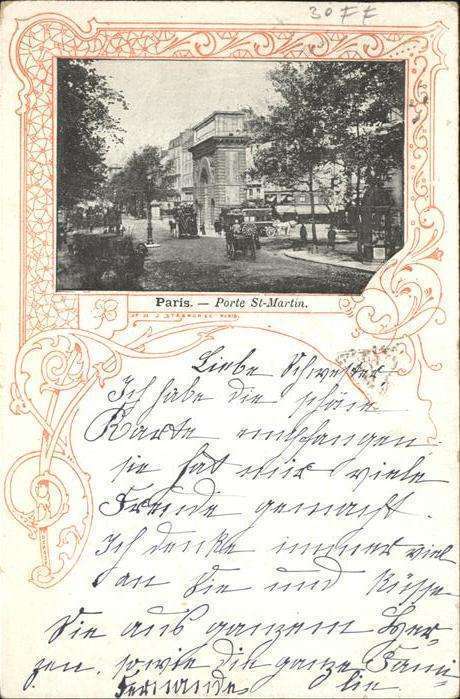 30 FF
Paris. — Porte St-Martin.
Liebe Schwester,
Ich habe die schöne
Karte empfangen
sie hat mir viele
Freude gemacht.
Ich denke immer viel
an Sie und küsse
Sie aus ganzem Her-
zen, sowie die ganze Fami-
Fernande lie